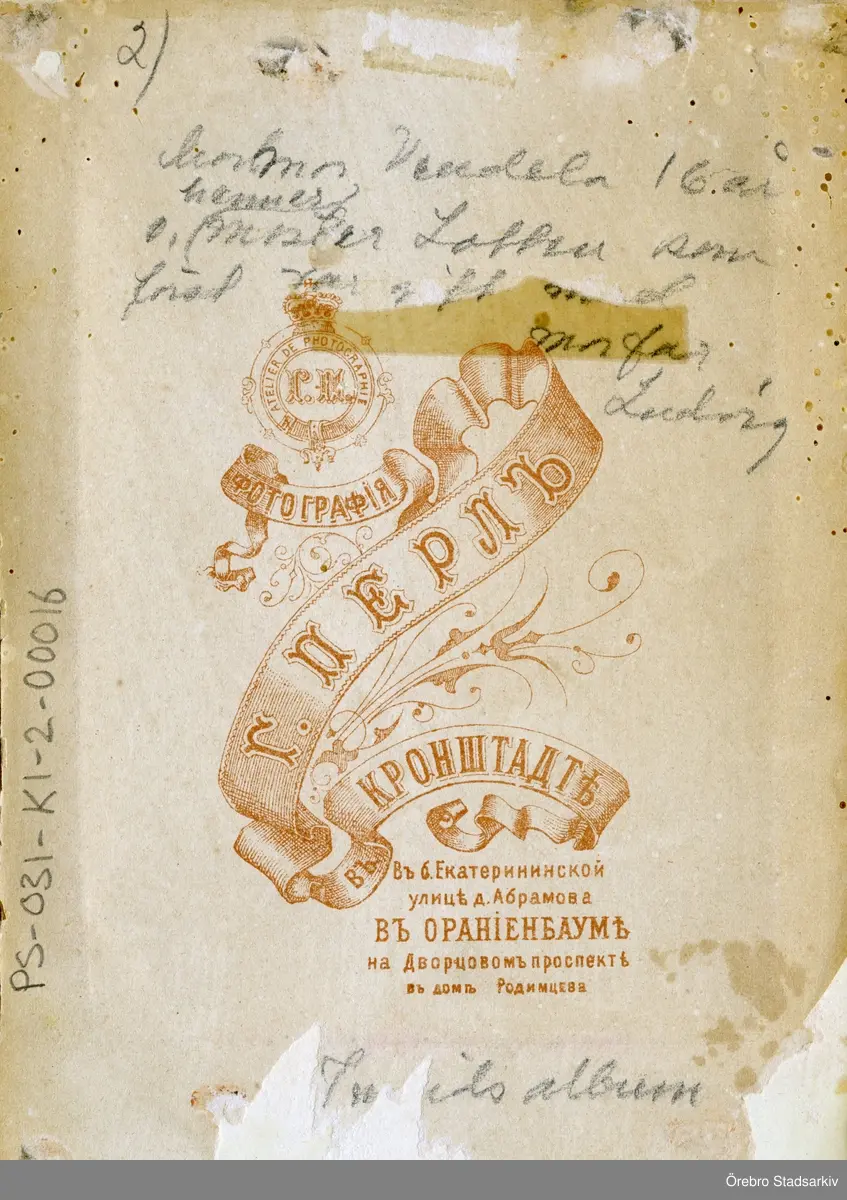 2)
Mormor Vendela 16 år
o, hennes moster Lotten som
först var gift med
morfar
Ludvig
ATELIER DE PHOTOGRAPHIE
ФОТОГРАФІЯ
Г. ПЕРЛЪ
ВЪ КРОНШТАДТѢ
Въ б. Екатерининской
улицѣ д. Абрамова
ВЪ ОРАНІЕНБАУМѢ
на Дворцовомъ проспектѣ
въ домѣ Родимцева
album
PS-031-K1-2-00016
Örebro Stadsarkiv